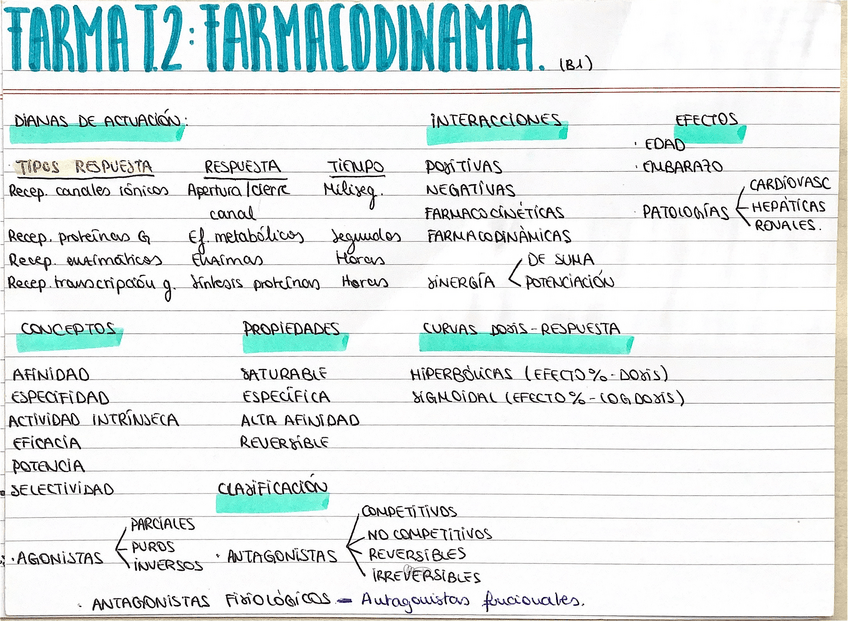 FARMA T.2: FARMACODINAMIA. (B1)
DIANAS DE ACTUACIÓN:
TIPOS RESPUESTA RESPUESTA TIEMPO
Recep. canales iónicos Apertura/cierre Miliseg.
canal
Recep. proteínas G Ef. metabólicos Segundos
Recep. enzimáticos Enzimas Horas
Recep. transcripción g. Síntesis proteínas Horas
INTERACCIONES
POSITIVAS
NEGATIVAS
FARMACOCINÉTICAS
FARMACODINÀMICAS
SINERGÍA
DE SUMA
POTENCIACIÓN
EFECTOS
· EDAD
· EMBARAZO
· PATOLOGÍAS
CARDIOVASC
HEPÁTICAS
RENALES.
CONCEPTOS
AFINIDAD
ESPECIFIDAD
ACTIVIDAD INTRÍNSECA
EFICACIA
POTENCIA
SELECTIVIDAD
PROPIEDADES
SATURABLE
ESPECÍFICA
ALTA AFINIDAD
REVERSIBLE
CURVAS DOSIS-RESPUESTA
HIPERBÓLICAS (EFECTO % - DOSIS)
SIGMOIDAL (EFECTO % - LOG DOSIS)
CLASIFICACIÓN
· AGONISTAS
PARCIALES
PUROS
INVERSOS
· ANTAGONISTAS
COMPETITIVOS
NO COMPETITIVOS
REVERSIBLES
IRREVERSIBLES
· ANTAGONISTAS FISIOLÓGICOS - Antagonistas funcionales.